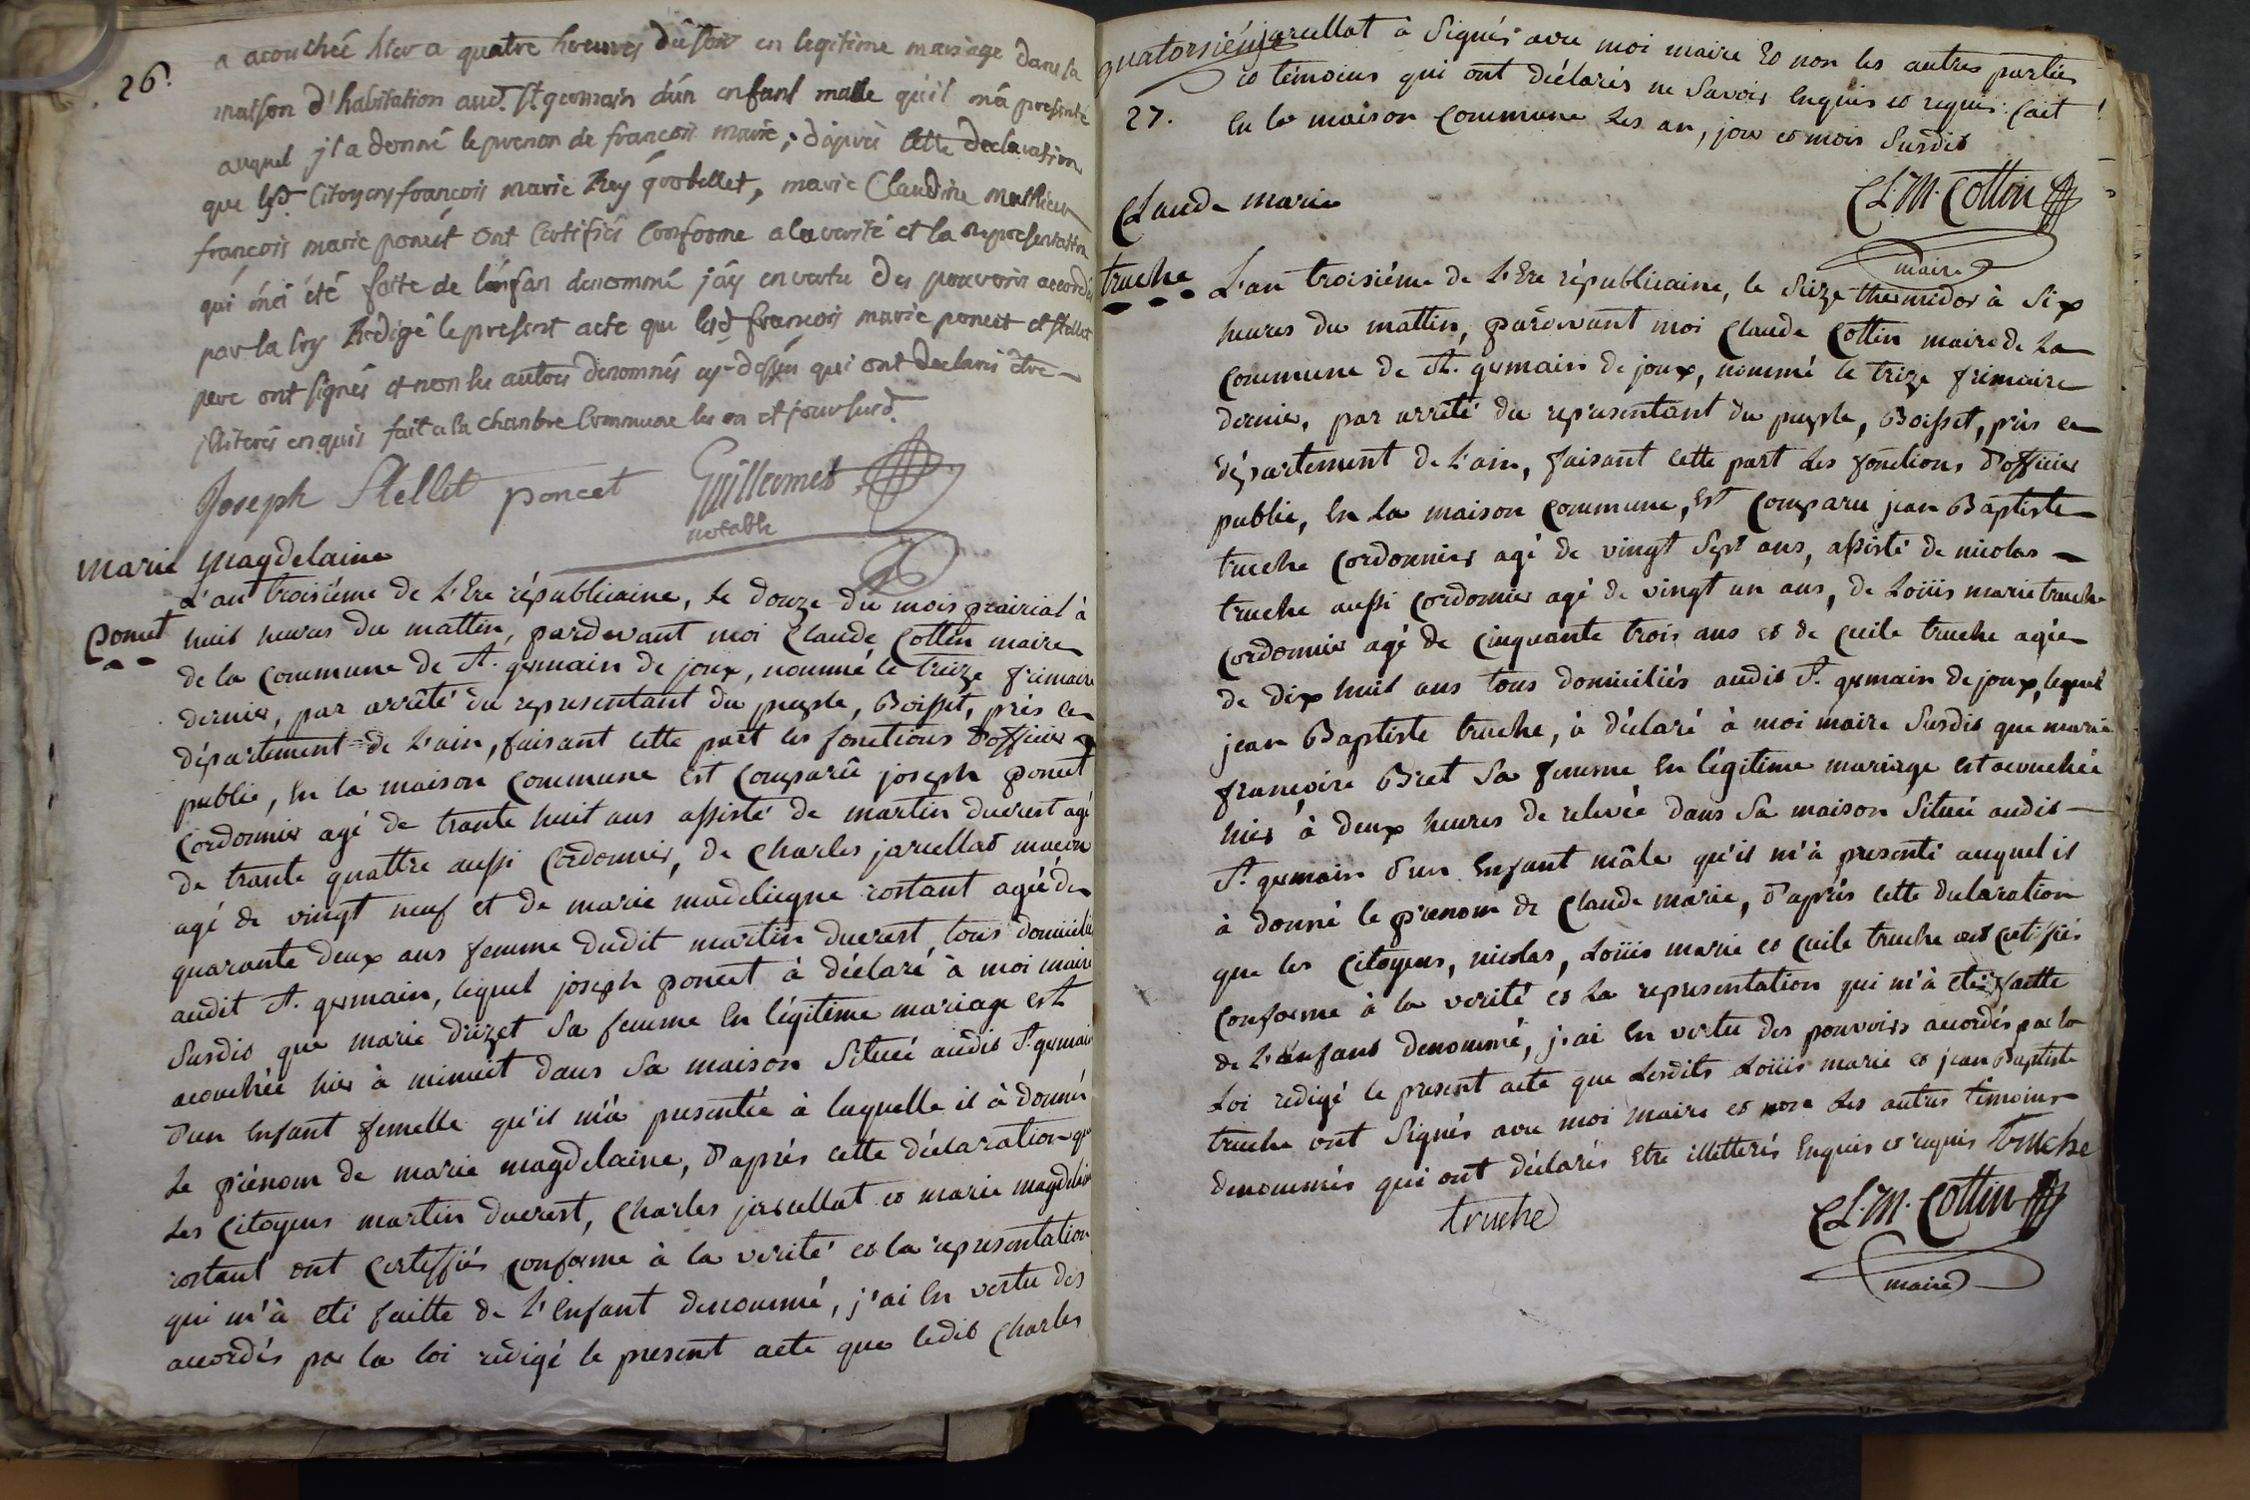 26.
a acouchée hier a quatre heures du soir en legitime mariage dans la
maison d'habitation aud. St germain d'un enfant malle qu'il m'a presenté
auquel jl a donné le prenom de françois marie, d'aprés cette declaration
que lesd. Citoyens françois marie Rey grobellet, marie Claudine mathieu
françois marie poncet ont Certifiés Conforme a la verité et la representation
qui m'ei été faite de l'enfan denommé j'ay en vertu des pouvoirs accordés
par la loy Redigé le present acte que lesd. françois marie poncet et Stellet
pere ont signés et non les autres denomnés cy-dessus qui ont declarés être
jliterés enquis fait a la chambre Commune les an et jour susd.
Joseph Stellet poncet Guillermet
notable
marie magdelaine
poncet
L'an troisiéme de L'Ere républicaine, le douze du mois prairial à
huit heures du mattin, pardevant moi Claude Cottin maire
de la Commune de St. germain de joux, nommé le treize frimaire
dernier, par arrêté du representant du peuple, Boisset, près le
département de L'ain, faisant cette part les fonctions d'officier
public, En la maison Commune est Comparû joseph poncet
Cordonnier agé de trante huit ans assisté de martin ducrest agé
de trante quattre aussi Cordonnier, de Charles jarcellat macon
agé de vingt neuf et de marie madeleigne rostant agée de
quarante deux ans femme dudit martin ducrest, tous domiciliés
audit St. germain, lequel joseph poncet à déclaré à moi maire
Susdit que marie druzet Sa femme En légitime mariage est
acouchée hier à minuit dans Sa maison Située audit St. germain
d'un Enfant femelle qu'il m'a presentée à laquelle il à donné
Le prénom de marie magdelaine, d'aprés cette déclaration que
Les Citoyens martin ducrest, Charles jarcellat et marie magdelaine
rostant ont Certiffiés Conforme à la verité et la representation
qui m'à été faitte de L'Enfant denommé, j'ai En vertu des
accordés par la loi redigé le present acte que ledit Charles
quatorsiéme
27.
jarcellat à Signés avec moi maire et non les autres parties
et témoins qui ont déclarés ne Savoir Enquis et requis. fait
En la maison Commune Les an, jour et mois Susdit
CL. M. Cottin
maire
Claude marie
truche
L'an troisiéme de L'Ere républicaine, le Seize thermidor à Six
heures du mattin, pardevant moi Claude Cottin maire de La
Commune de St. germain de joux, nommé le treize frimaire
dernier, par arrêté du representant du peuple, Boisset, près le
département de L'ain, faisant cette part Les fonctions d'officier
public, En La maison Commune, Est Comparu jean Baptiste
truche Cordonnier agé de vingt Sept ans, assisté de nicolas
truche aussi Cordonnier agé de vingt un ans, de Loüis marie truche
Cordonnier agé de Cinquante trois ans et de Cecile truche agée
de dix huit ans tous domiciliés audit St. germain de joux, lequel
jean Baptiste truche, à déclaré à moi maire Susdit que marie
francoise Bret Sa femme En légitime mariage est acouchée
hier à deux heures de relevée dans Sa maison Située audit
St. germain d'un Enfant mâle qu'il m'à presenté auquel il
à donné le prenom de Claude marie, d'aprés cette declaration
que les Citoyens, nicolas, Loüis marie et Cecile truche ont Certiffiés
Conforme à la verité et La representation qui m'à été faitte
de L'enfant denommé, j'ai En vertu des pouvoirs accordés par la
Loi redigé le present acte que Lesdits Loüis marie et jean Baptiste
truche ont Signés avec moi maire et non Les autres témoins
denommés qui ont déclarés Etre illitterés Enquis et requis truche
truche
CL. M. Cottin
maire